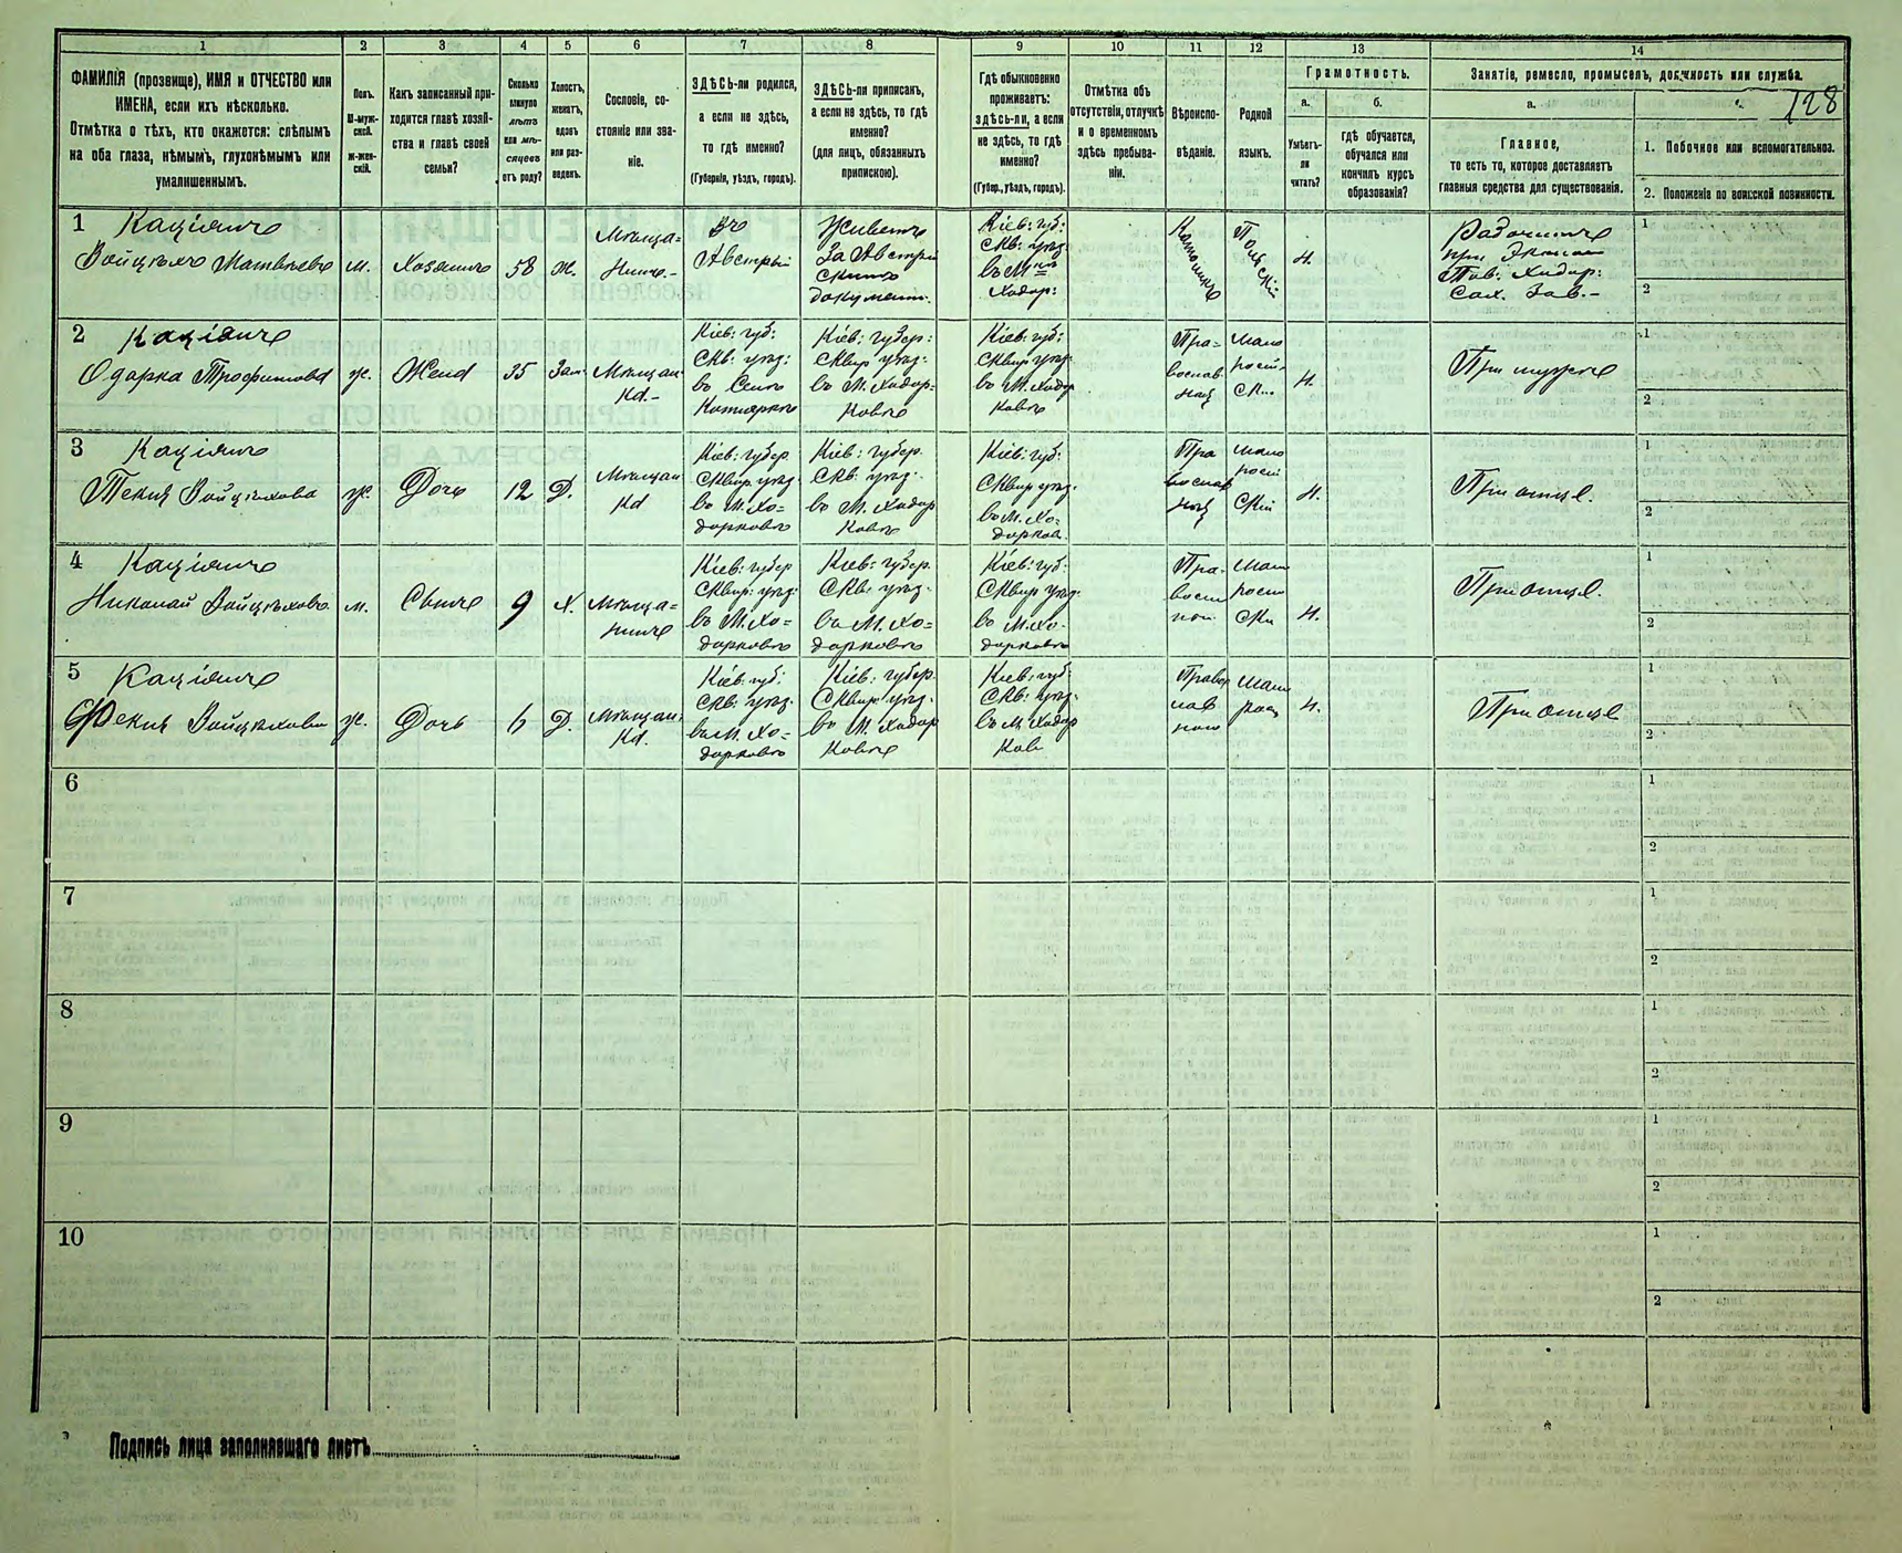 128
1 2 3 4 5 6 7 8 9 10 11 12 13 14
ФАМИЛІЯ (прозвище), ИМЯ и ОТЧЕСТВО или
ИМЕНА, если ихъ нѣсколько.
Отмѣтка о тѣхъ, кто окажется: слѣпымъ
на оба глаза, нѣмымъ, глухонѣмымъ или
умалишеннымъ.
Полъ.
М-муж-
ской.
Ж-жен-
скій.
Какъ записанный при-
ходится главѣ хозяй-
ства и главѣ своей
семьи?
Сколько
минуло
лѣтъ
или мѣ-
сяцевъ
отъ роду?
Холостъ,
женатъ,
вдовъ
или раз-
веденъ.
Сословіе, со-
стояніе или зва-
ніе.
ЗДѢСЬ-ли родился,
а если не здѣсь,
то гдѣ именно?
(Губернія, уѣздъ, городъ).
ЗДѢСЬ-ли приписанъ,
а если не здѣсь, то гдѣ
именно?
(для лицъ, обязанныхъ
припискою).
Гдѣ обыкновенно
проживаетъ:
здѣсь-ли, а если
не здѣсь, то гдѣ
именно?
(Губер., уѣздъ, городъ).
Отмѣтка объ
отсутствіи, отлучкѣ
и о временномъ
здѣсь пребыва-
ніи.
Вѣроиспо-
вѣданіе.
Родной
языкъ.
Грамотность.
а.
Умѣетъ-
ли
читать?
б.
гдѣ обучается,
обучался или
кончилъ курсъ
образованія?
Занятіе, ремесло, промыселъ, должность или служба.
а.
Главное,
то есть то, которое доставляетъ
главныя средства для существованія.
1. Побочное или вспомогательное.
2. Положеніе по воинской повинности.
1 Каціянъ
Войцѣхъ Матвѣевъ
м.
Хозяинъ
58
Ж.
Мѣща=
нинъ.-
Въ
Австріи
Живетъ
За Австрій
скимъ
документ.
Кіев: губ:
Скв: уѣзд:
въ М
Ходор:
Католикъ
Польскій
Н.
При
Сах. Зав.-
1
2
2 Каціянъ
Одарка Трофимова
ж.
Жена
35
Зам.
Мѣщан
ка.-
Кіев: губ:
Скв: уѣзд:
въ Селѣ
Кіев: губер:
Сквир уѣзд:
въ М. Ходор=
ковѣ
Кіев: губ:
Сквир уѣзд:
въ М. Ходор
ковѣ
Пра=
вослав
ный
Мало
россій
ск.
Н.
При мужѣ
1
2
3 Каціянъ
Текля Войцѣхова
ж.
Дочь
12
Д.
Мѣщан
ка
Кіев: губер.
Сквир. уѣзд.
въ М. Хо=
дорковѣ
Кіев: губер.
Скв: уѣзд:
въ М. Ходор
ковѣ
Кіев: губ:
Сквир уѣзд.
въ М. Хо=
дорков.
Пра
вослав
ный
Мало
россій
скій
Н.
При отцѣ.
1
2
4 Каціянъ
Николай Войцѣховъ
м.
Сынъ
9
Х.
Мѣща=
нинъ
Кіев: губер
Сквир: уѣзд:
въ М. Хо=
дорковѣ
Кіев: губер.
Скв: уѣзд.
въ М. Хо=
дорковѣ
Кіев: губ:
Сквир уѣзд:
въ М. Хо-
дорковѣ
Пра-
Н.
При отцѣ.
1
2
5 Каціянъ
Войцѣхова
ж.
Дочь
6
Д.
Мѣщан.
ка.
Кіев: губ:
Скв: уѣзд.
въ М. Хо=
дорковѣ
Кіев: губер.
Сквир: уѣзд.
въ М. Ходор
ковѣ
Кіев: губ:
Скв: уѣзд.
въ М. Ходор
ков
Н.
При отцѣ
1
2
6
1
2
7
1
2
8
1
2
9
1
2
10
1
2
Подпись лица заполнявшаго листъ